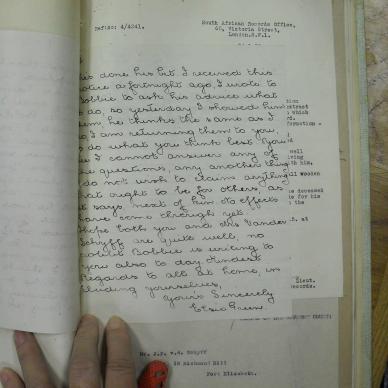 Ref:No: 4/4241.
South African Records Office,
Victoria Street,
London.S.W.1.
has done his bit. I received this
notice a fortnight ago, I wrote to
Bobbie to ask his advice what
to do, so yesterday I showed him
them he thinks the same as I
do I am returning them to you,
to do what you think best. You
see I cannot answer any of
the questions, any another thing
I do not wish to claim anything
that ought to be for others, as
it says next of kin. No effects
have come through yet.
Hope both you and Mrs Vander
Schyff are quite well, no
doubt Bobbie is writing to
you also to day. Kindest
Regards to all at home, in
cluding yourselves,
Yours Sincerely
Elsie Green.
extract
which
well
with him,
wooden
deceased
for his
the
at
Lieut.
Records.
Mr. J.P. v.d. Schyff
Richmond Hill
Port Elizabeth.